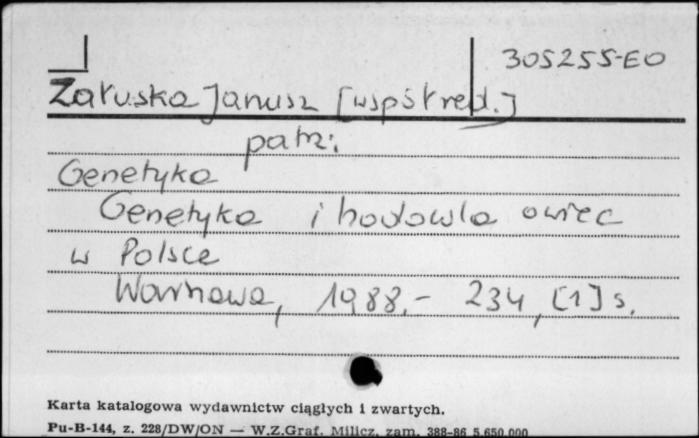 305255-EO
Załuska Janusz [współred.]
patrz:
Genetyka
Genetyka i hodowla owiec
w Polsce
Warszawa, 1988.- 234, [1] s.
Karta katalogowa wydawnictw ciągłych i zwartych.
Pu-B-144, z. 228/DW/ON — W.Z.Graf. Milicz, zam. 388-86 5.650.000